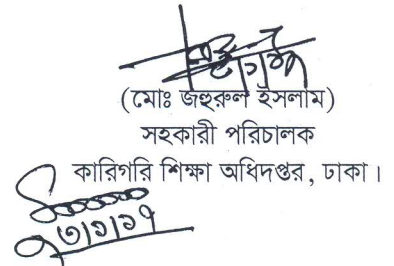 (মোঃ জহুরুল ইসলাম)
সহকারী পরিচালক
কারিগরি শিক্ষা অধিদপ্তর, ঢাকা।
৩/১/১৭